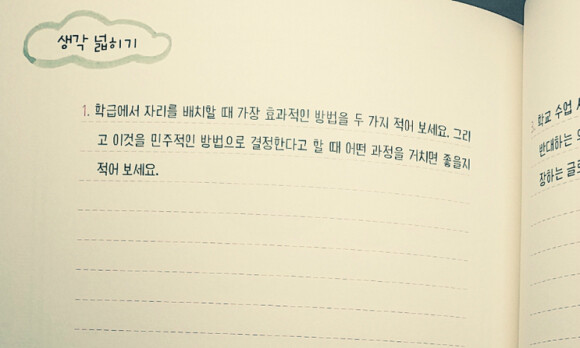 생각 넓히기
1. 학급에서 자리를 배치할 때 가장 효과적인 방법을 두 가지 적어 보세요. 그리
고 이것을 민주적인 방법으로 결정한다고 할 때 어떤 과정을 거치면 좋을지
적어 보세요.
3. 학교 수업
반대하는
장하는 글